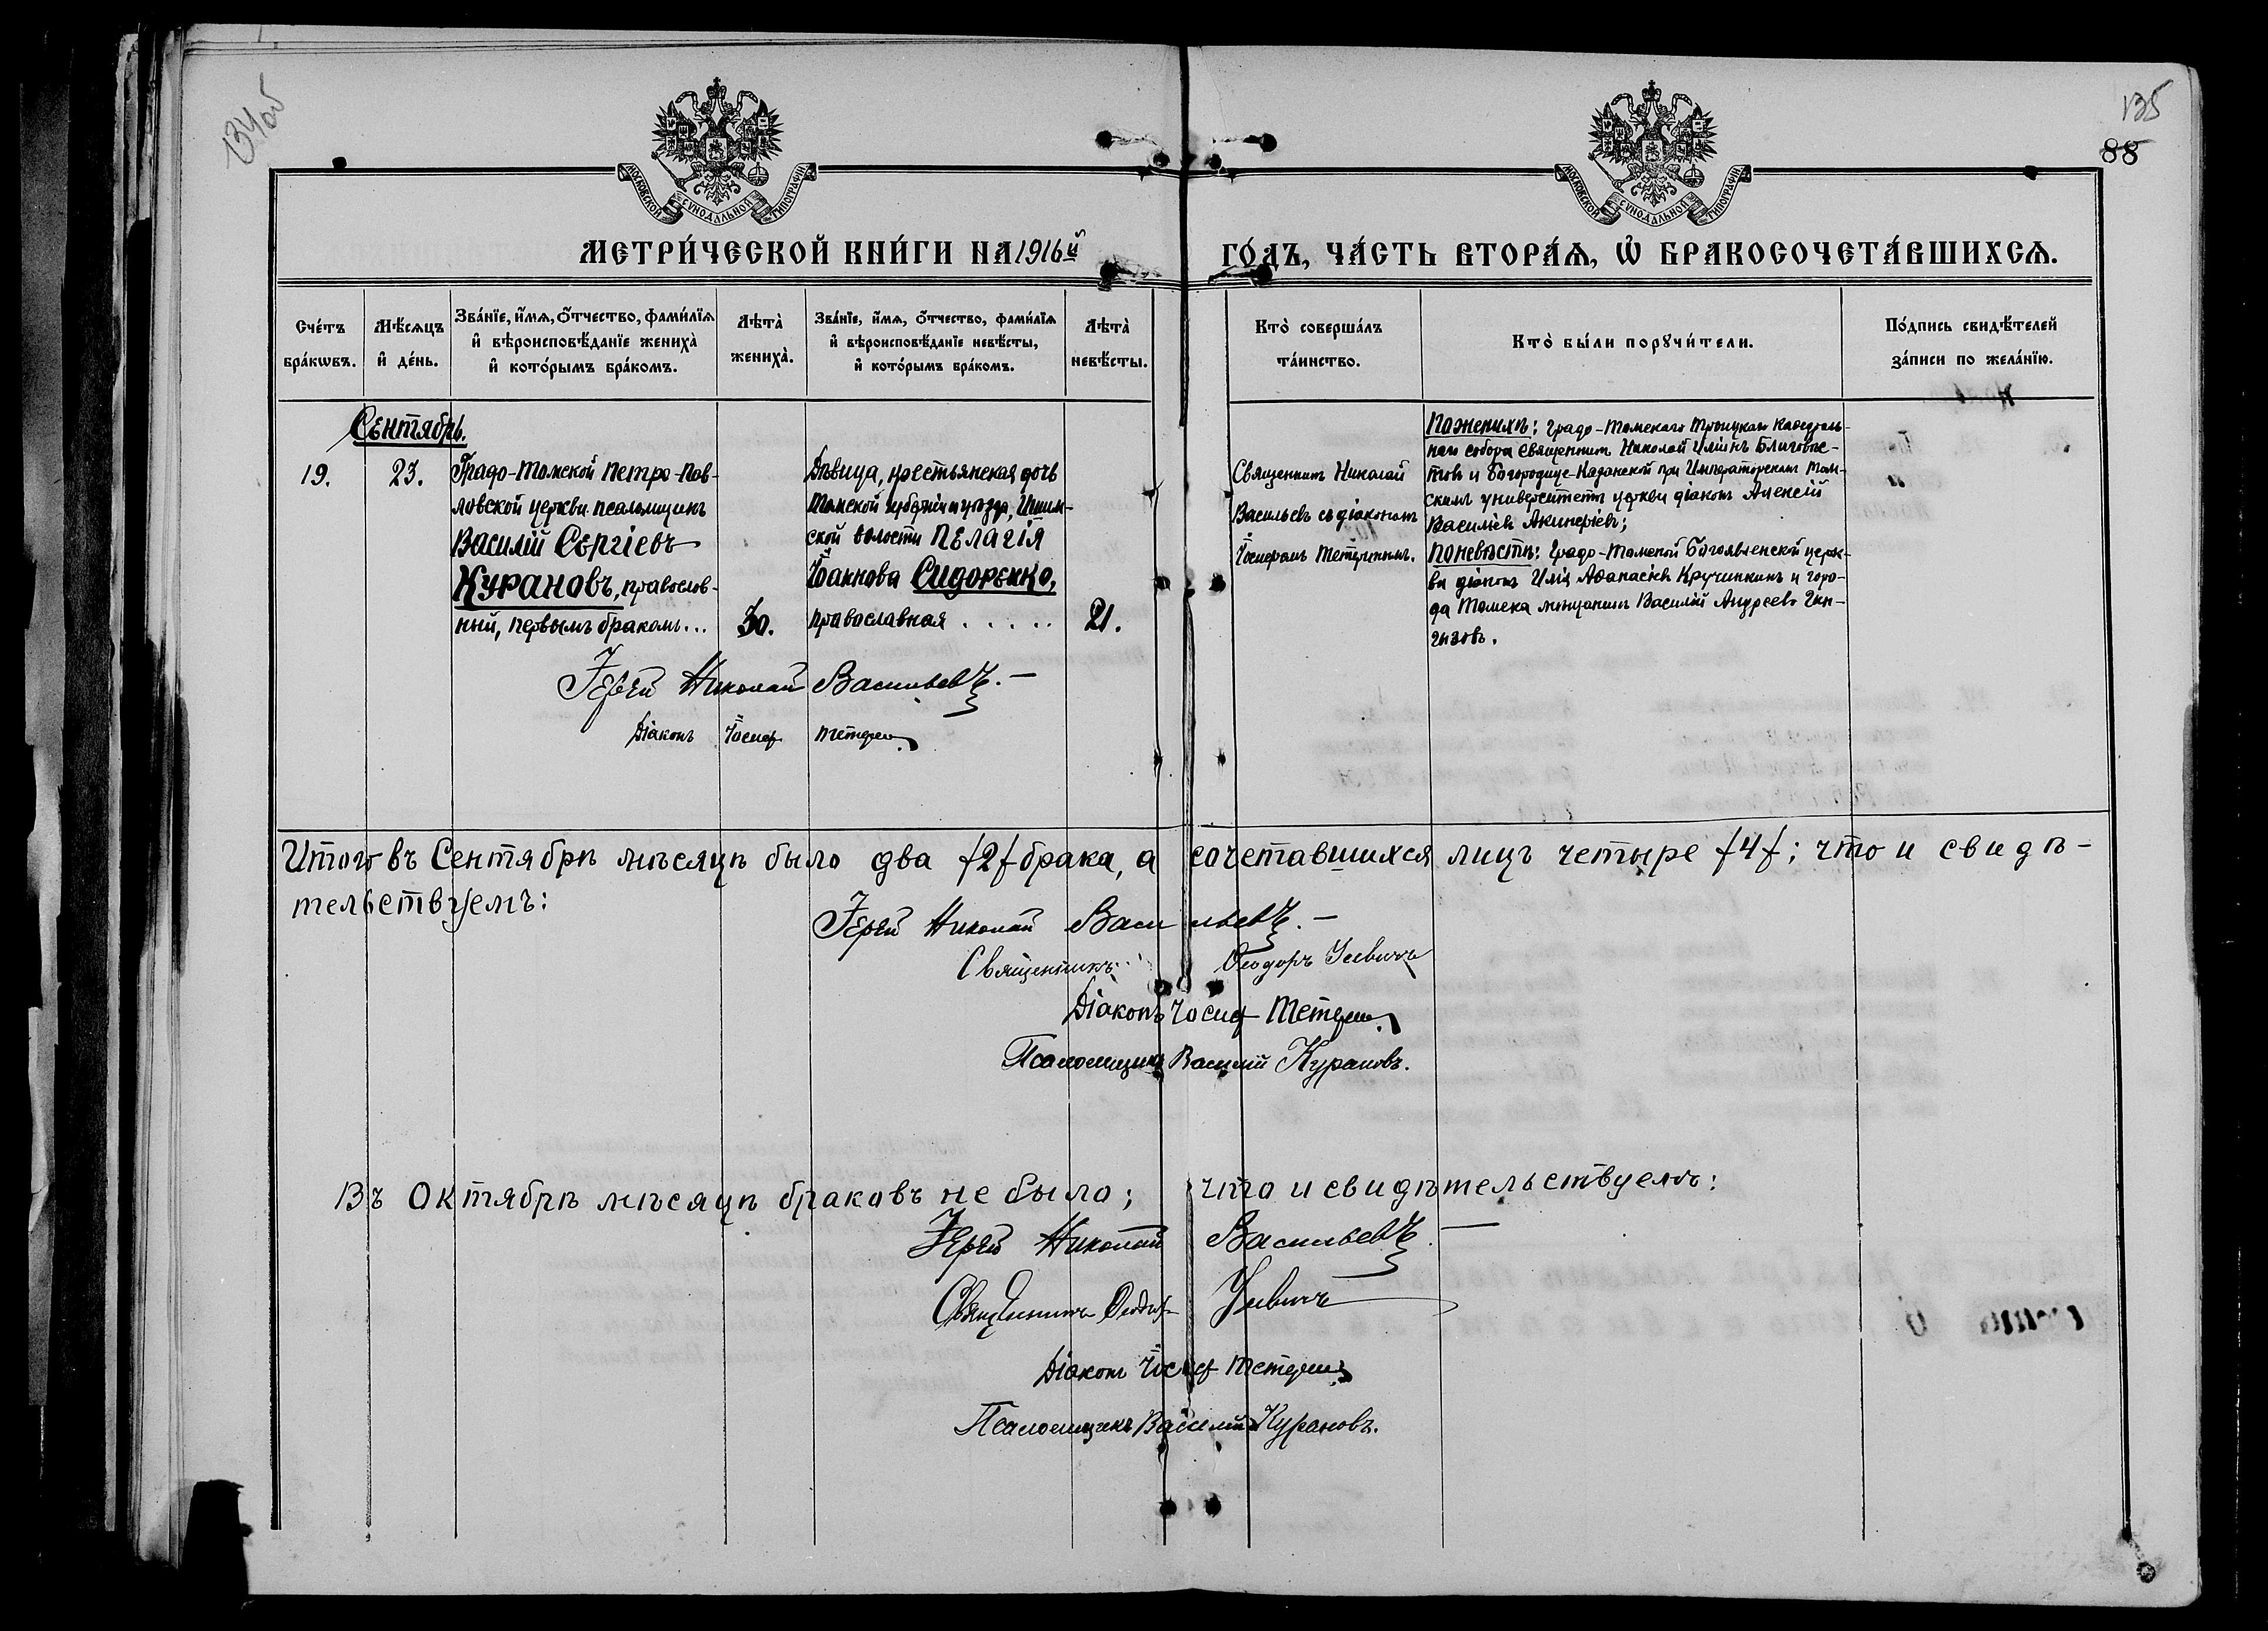 134об
135
88
МОСКОВСКОЙ СУНОДАЛЬНОЙ ТИПОГРАФІИ
МОСКОВСКОЙ СУНОДАЛЬНОЙ ТИПОГРАФІИ
МЕТРИ́ЧЕСКОЙ КНИ́ГИ НА 1916й ГО́ДЪ, ЧА́СТЬ ВТОРА́Ѧ, Ѽ БРАКОСОЧЕТА́ВШИХСѦ.
Сче́тъ бра́кѡвъ.
Мѣ́сѧцъ и҆ де́нь.
Зва́нїе, и҆́мѧ, ѻ҆́тчество, фами́лїѧ
и҆ вѣроисповѣ́данїе жениха̀
и҆ кото́рымъ бра́комъ.
Лѣта̀ жениха̀.
Зва́нїе, и҆́мѧ, ѻ҆́тчество, фами́лїѧ
и҆ вѣроисповѣ́данїе невѣ́сты,
и҆ кото́рымъ бра́комъ.
Лѣта̀ невѣ́сты.
Кто̀ соверша́лъ та́инство.
Кто̀ бы́ли порꙋчи́тели.
По́дпись свидѣ́телей за́писи по жела́нїю.
Сентябрь.
19.
23.
Градо-Томской Петро-Пав-
ловской церкви псаломщикъ
Василій Сергіевъ
Курановъ, православ-
ный, первымъ бракомъ...
30.
Дѣвица, крестьянская дочь
Томской губерніи и уѣзда, Ишим-
ской волости Пелагія
Іоаннова Сидоренко,
православная . . . . .
21.
Священникъ Николай
Васильевъ съ діакономъ
Іосифомъ Тетеринымъ.
По женихѣ: Градо-Томскаго Троицкаго Каѳедраль-
наго собора священникъ Николай Иліинъ Благовѣс-
товъ и Богородице-Казанской при Императорскомъ Том-
скомъ университетѣ церкви діаконъ Алексій
Василіевъ Акинфіевъ;
По невѣстѣ: Градо-Томской Богоявленской церк-
ви діаконъ Илія Аѳанасіевъ Кручинкинъ и горо-
да Томска мѣщанинъ Василій Андреевъ Чин-
гизовъ.
Іерей Николай Васильевъ. —
Діаконъ Іосиф Тетерин
Итого въ Сентябрѣ мѣсяцѣ было два /2/ брака, а сочетавшихся лицъ четыре /4/; что и свидѣ-
тельствуемъ:
Іерей Николай Васильевъ. —
Священникъ Ѳеодоръ
Діаконъ Іосиф Тетерин
Псаломщикъ Василій Курановъ.
Въ Октябрѣ мѣсяцѣ браковъ не было; что и свидѣтельствуемъ:
Іерей Николай Васильевъ. —
Священникъ Ѳеодоръ
Діаконъ Іосиф Тетерин
Псаломщикъ Василій Курановъ.